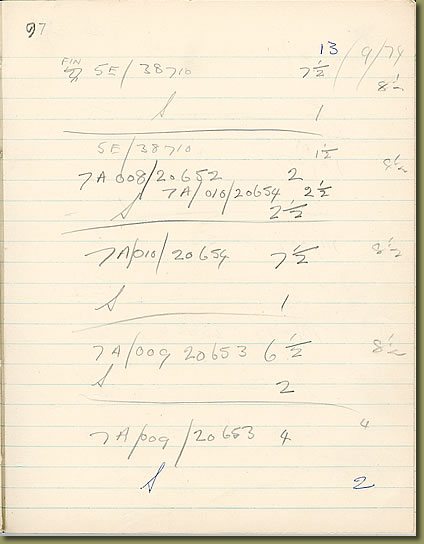 97
13/9/74
FIN 5E/38710 7½
8½
S 1
5E/38710 1½
7A 008/20652 2 8½
7A/010/20654 2½
S 2½
7A/010/20654 7½ 8½
S 1
7A/009 20653 6½ 8½
S 2
7A/009/20653 4 4
S 2